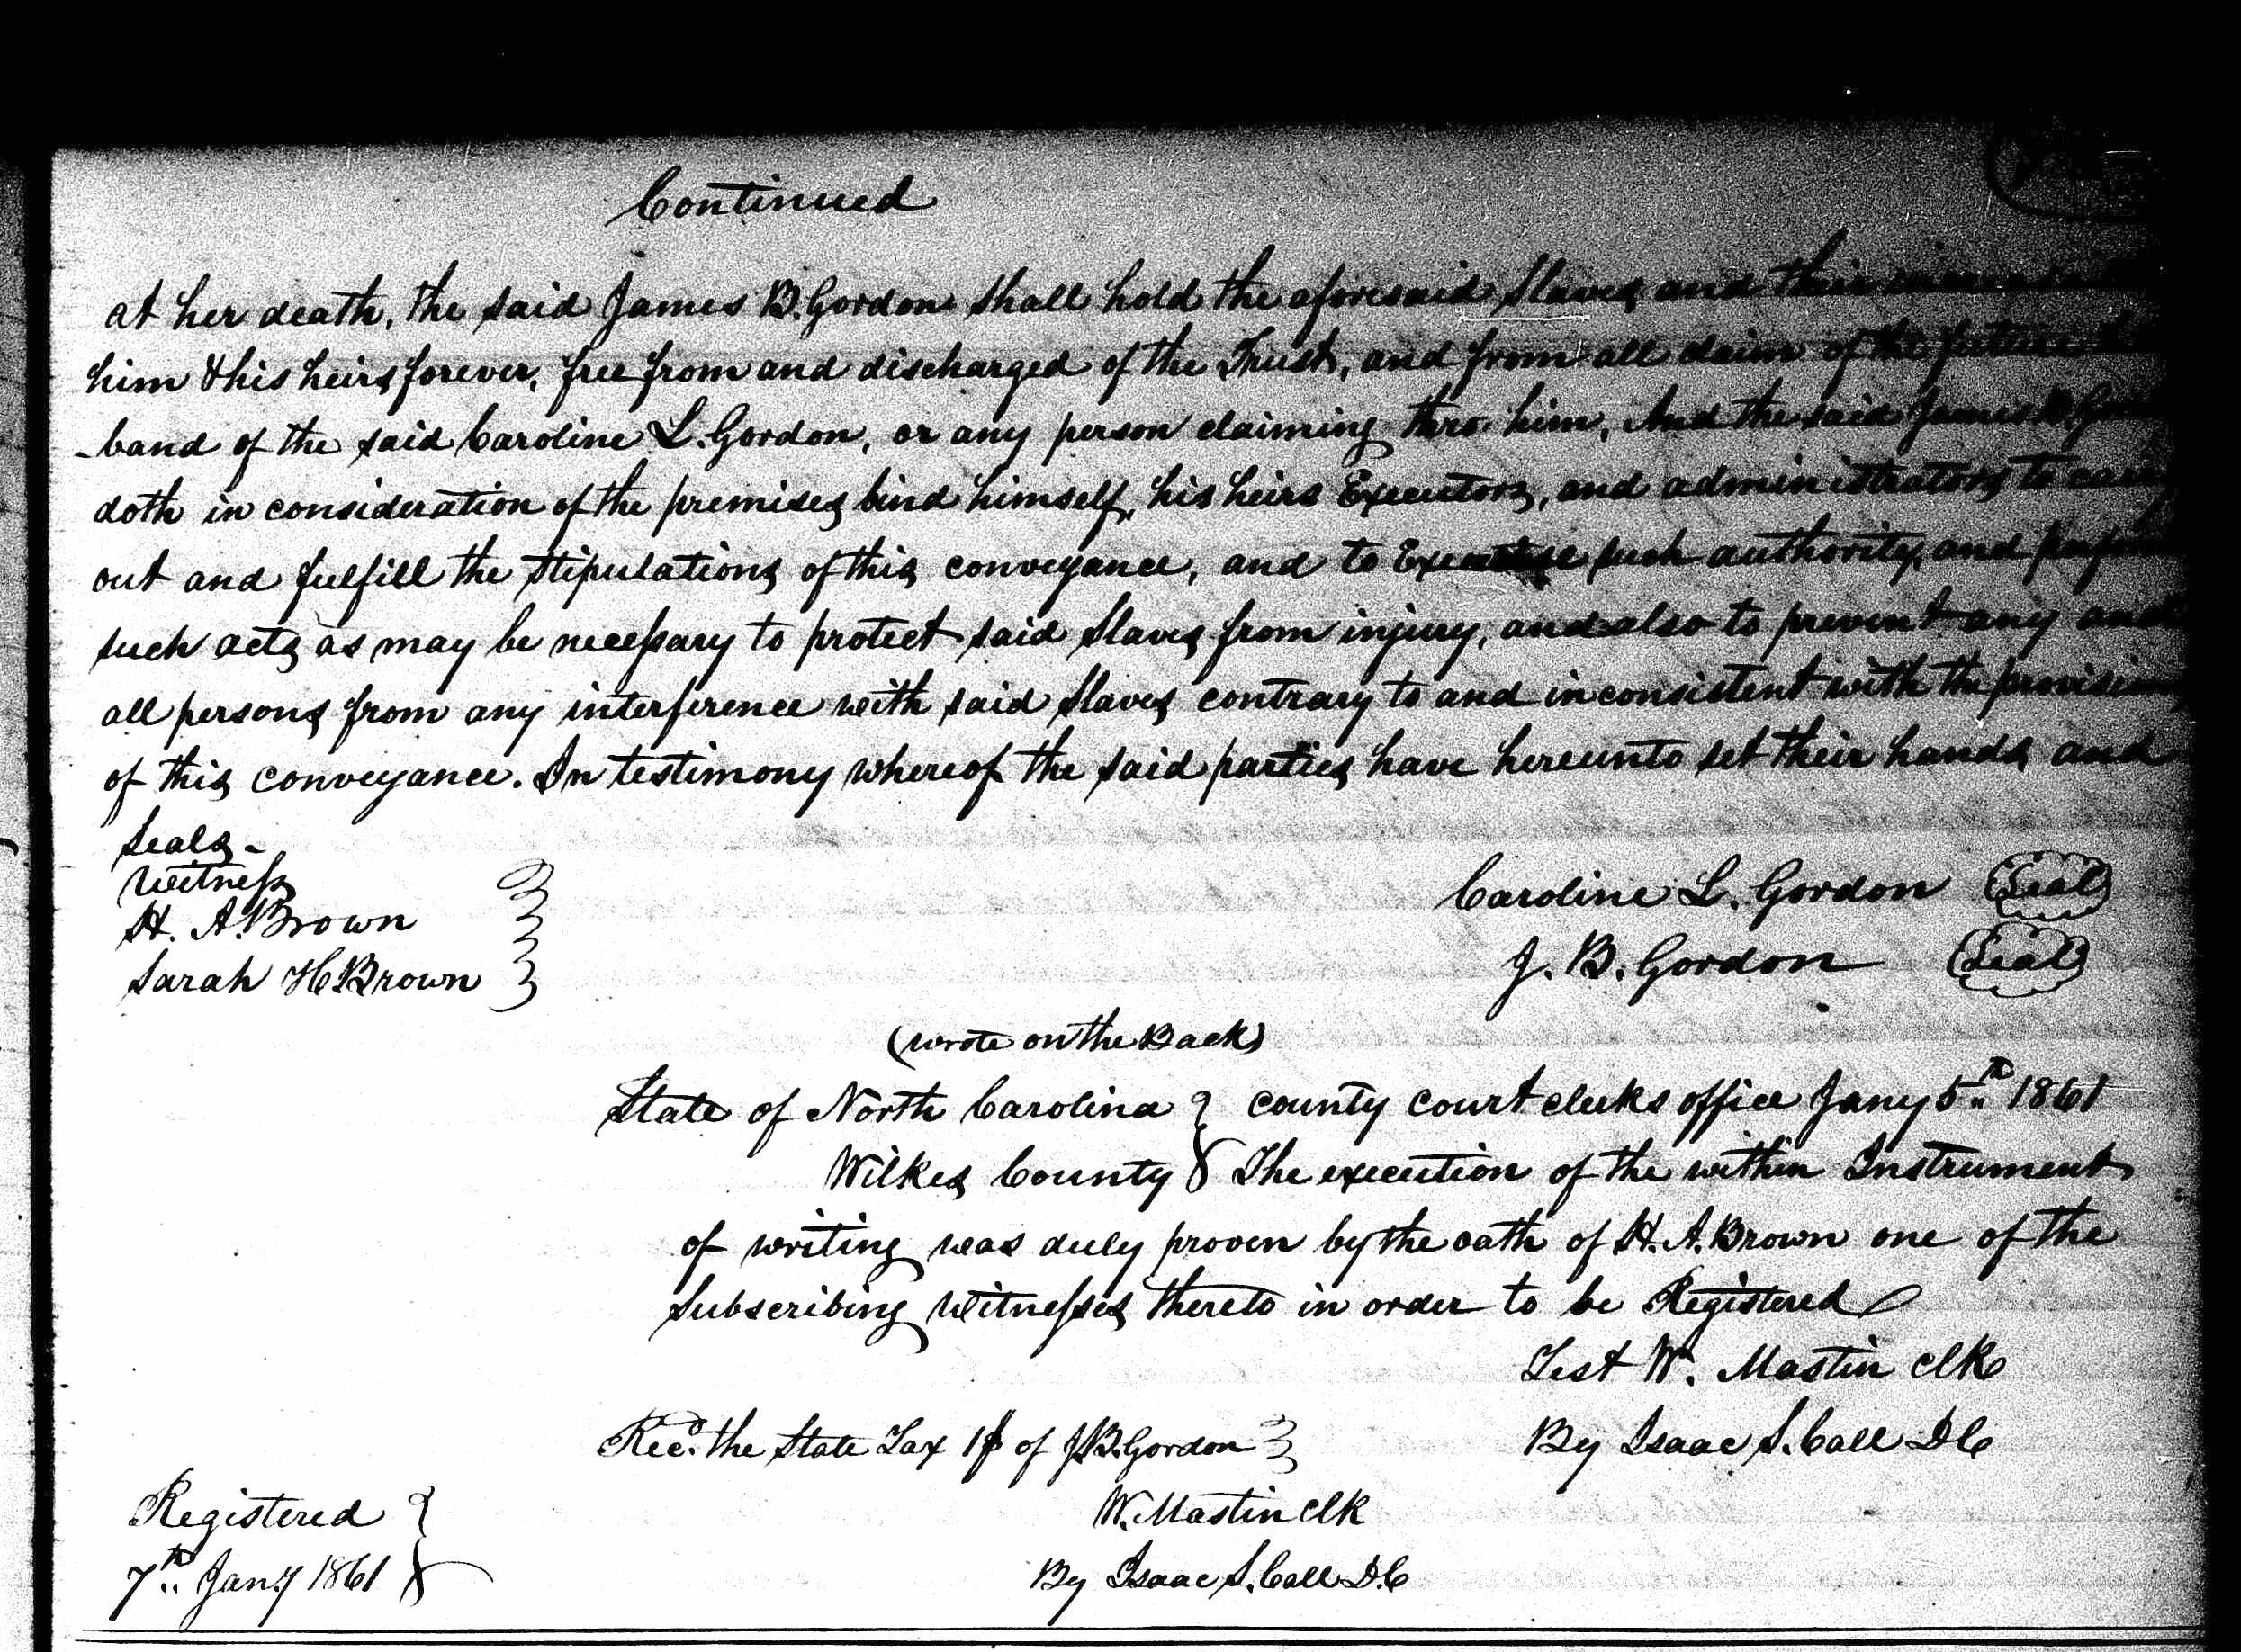 Continued
at her death, the said James B. Gordon shall hold the aforesaid Slaves and their
him & his heirs forever, free from and discharged of the Trust, and from all claim of the future
-band of the said Caroline L. Gordon, or any person claiming thro him, And the said James B.
doth in consideration of the premises bind himself, his heirs Executors, and administrators to
out and fulfill the stipulations of this conveyance, and to such authority, and
such acts as may be necessary to protect said Slaves from injury, and also to prevent any and
all persons from any interference with said Slaves contrary to and inconsistent with the provisions
of this conveyance. In testimony whereof the said parties have hereunto set their hands and
Seals-
Witness
H. A. Brown
Sarah H Brown
Caroline L. Gordon (Seal)
J. B. Gordon (Seal)
(wrote on the Back)
State of North Carolina } county court clerks office Jany 5th 1861
Wilkes County } The execution of the within Instrument
of writing was duly proven by the oath of H. A. Brown one of the
Subscribing witnesses thereto in order to be Registered
Test W. Mastin clk
By Isaac S. Call DC
Recd. the State Tax 1$ of J.B. Gordon
W. Mastin clk
By Isaac S. Call D.C
Registered
7th Jany 1861